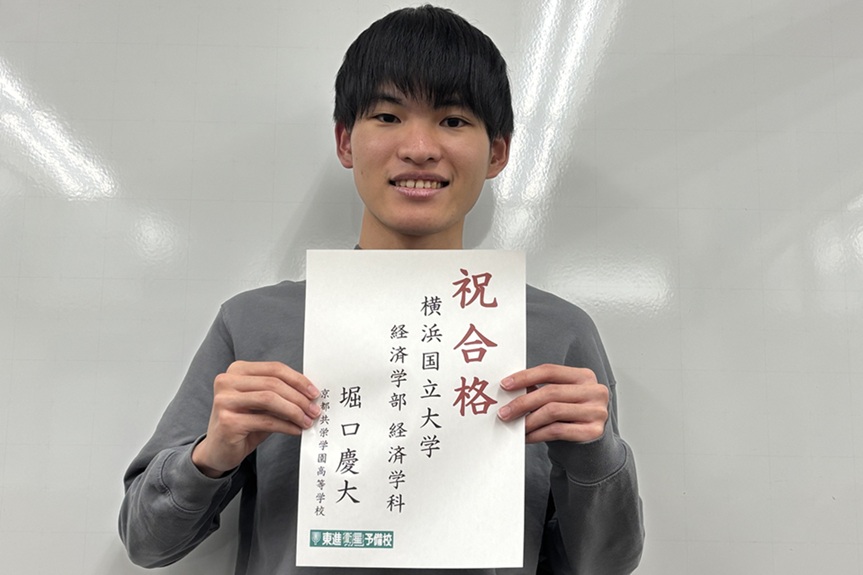 祝合格
横浜国立大学
経済学部 経済学科
堀口慶大
京都共栄学園高等学校
東進衛星予備校